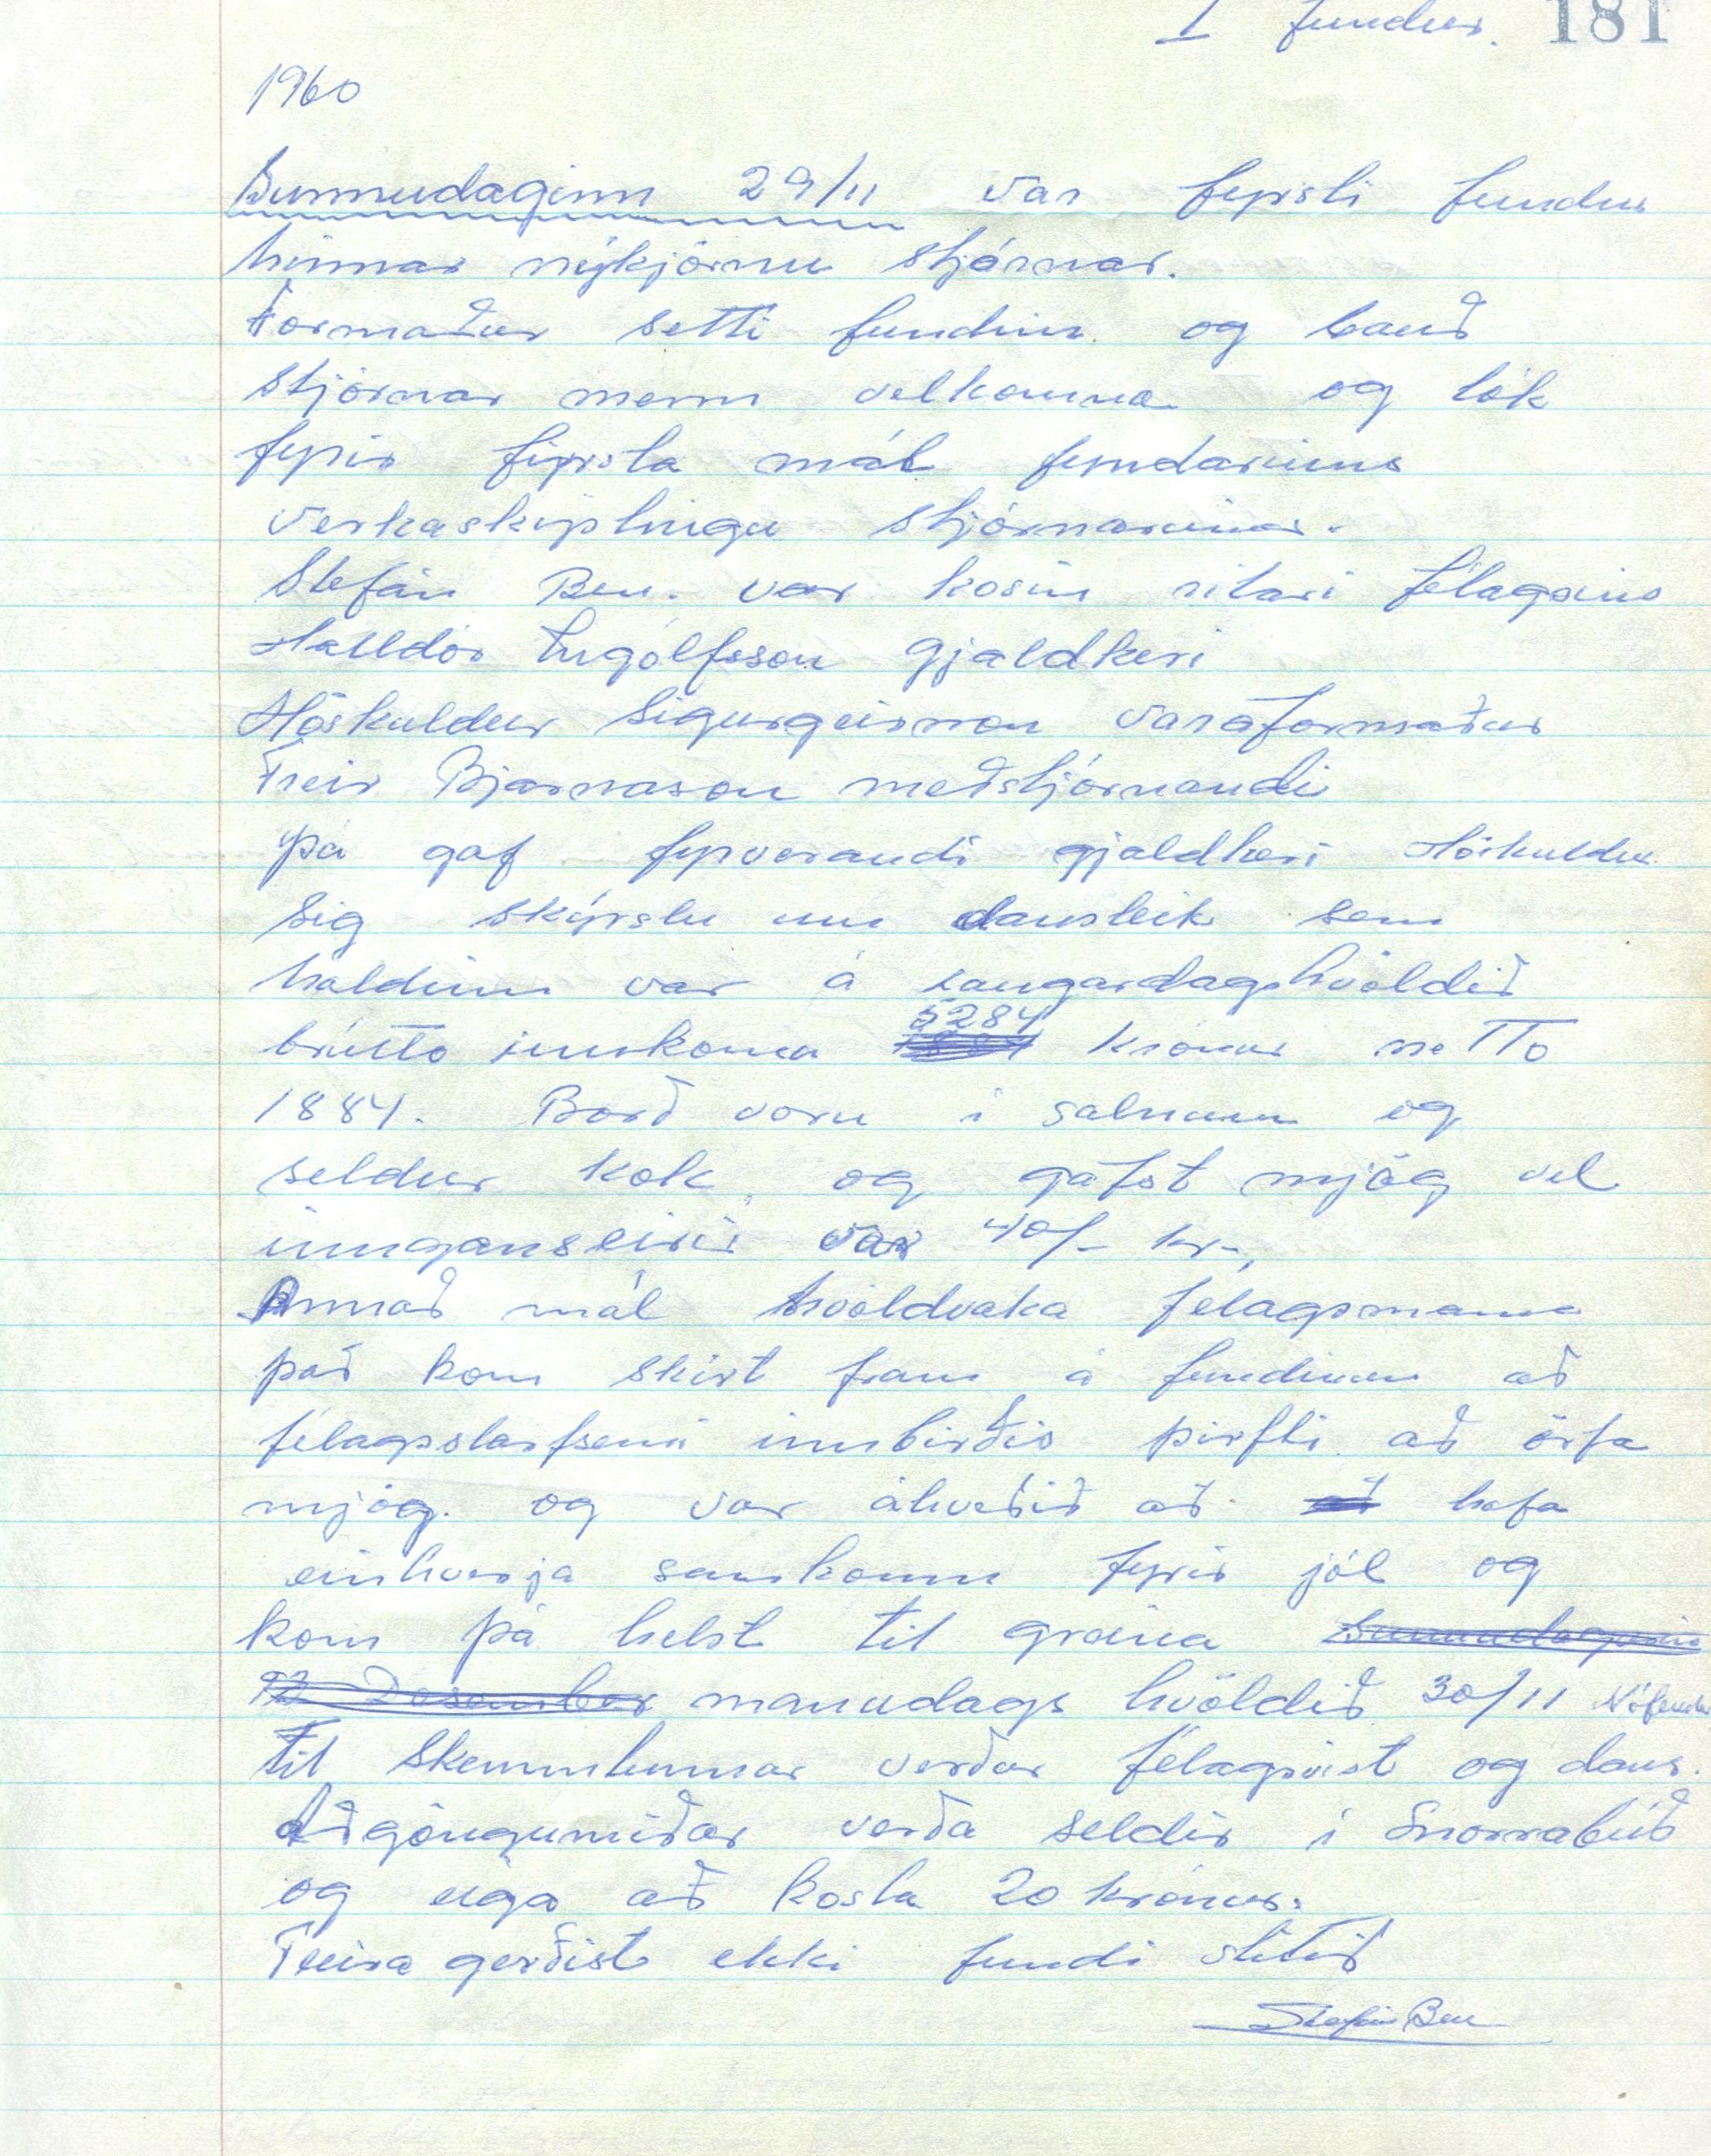 I fundur. 181
1960
Sunnudaginn 29/11 var fyrsti fundur
hinnar nýkjörnu stjórnar.
Formaður setti fundinn og bauð
stjórnar menn velkomna og tók
fyrir fyrsta mál fundarins
verkaskiptingu stjórnarinnar.
Stefán Ben. var kosin ritari félagsins
Halldór Ingólfsson gjaldkeri
Höskuldur Sigurgeirsson varaformaður
Freir Bjarnason meðstjórnandi
þá gaf fyrverandi gjaldkeri Höskuldur
Sig skýrslu um dansleik sem
haldinn var á laugardagskvöldið
brúttó innkoma 5284 krónur nettó
1884. Borð voru í salnum og
seldur kók, og gafst mjög vel
inngangseirir var 40/- kr-,
Annað mál kvöldvaka félagsmanna
það kom skírt fram á fundinum að
félagsstarfsemi innbirðis þirfti að örfa
mjög. og var ákveðið að að hafa
einhverja samkomu fyrir jól og
kom þá helst til greina Sunnudagurinn
12 Desember manudags kvöldið 30/11 Nófember
Til skemmtunnar verður félagsvist og dans.
Aðgöngumiðar verða seldir í Snorrabúð
og eiga að kosta 20 krónur.
Fleira gerðist ekki fundi slitið
Stefán Ben